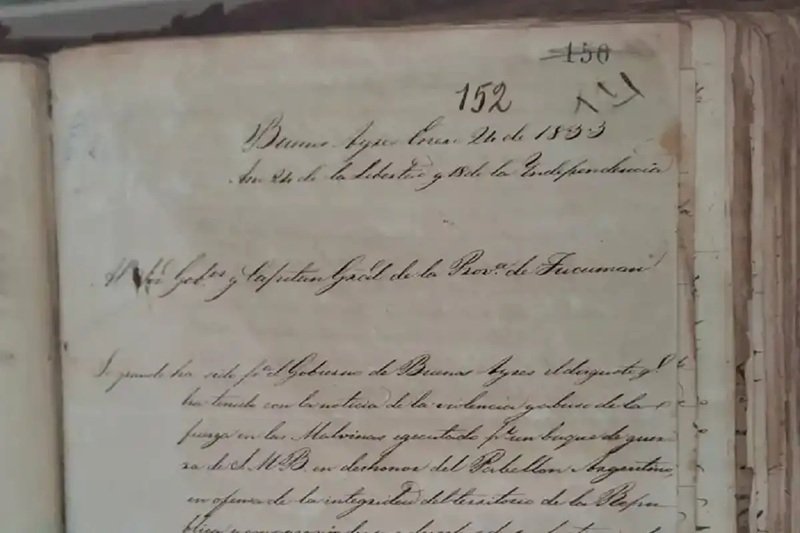 150
152
14
Buenos Ayres Enero 24 de 1833
Año 24 de la Libertad y 18 de la Independencia
Al Sor. Gobor. y Capitan Gral de la Prova. de Tucuman
grande ha sido pa. el Gobierno de Buenos Ayres el disgusto q.e
ha tenido con la noticia de la violencia y abuso de la
fuerza en las Malvinas egecutado pr. un buque de guer-
ra de S.M.B. en deshonor del Pabellon Argentino,
en ofensa de la integridad del territorio de la Repu-
blica